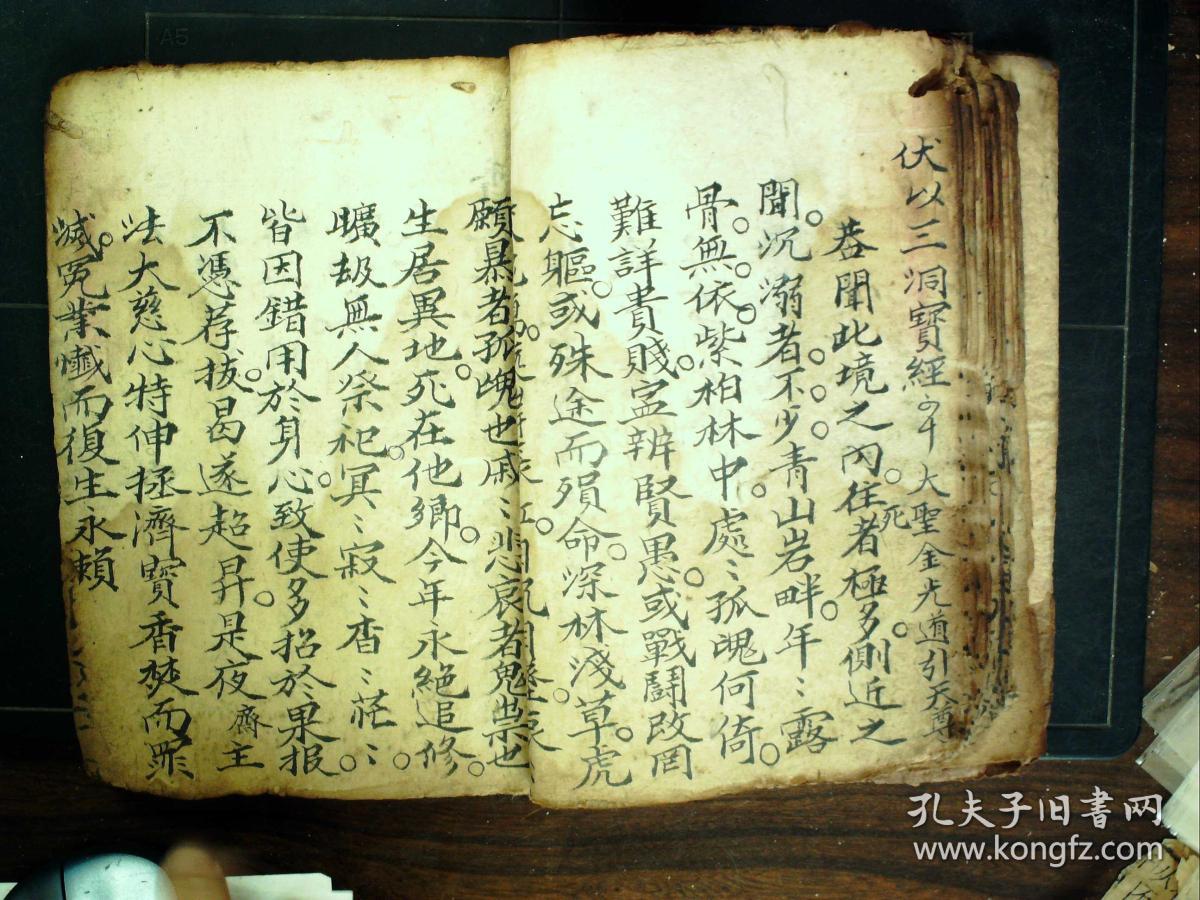 伏以三洞寶經 大聖金光道引天尊
聞此境之內。往者極多。側近之
死
聞。沉溺者。不少。青山岩畔。年〻露
骨。無依。紫柏林中。處〻孤魄何倚。
難詳貴賤。孟辨賢愚。或戰鬪改罔
忘軀。或殊途而殞命。深林淺草。虎
願暴者孤魄也戚〻悲哀者鬼祟也。
生居異地。死在他鄉。今年永絕追修。
曠劫無人祭祀。冥〻寂〻杳〻茫〻。
皆因錯用於身心。致使多招於果報
不憑荐拔。曷遂超昇。是夜齋主
法大慈心特伸拯濟寶香焚而罪
滅。冤業懺而復生永賴
A5
孔夫子旧书网
www.kongfz.com